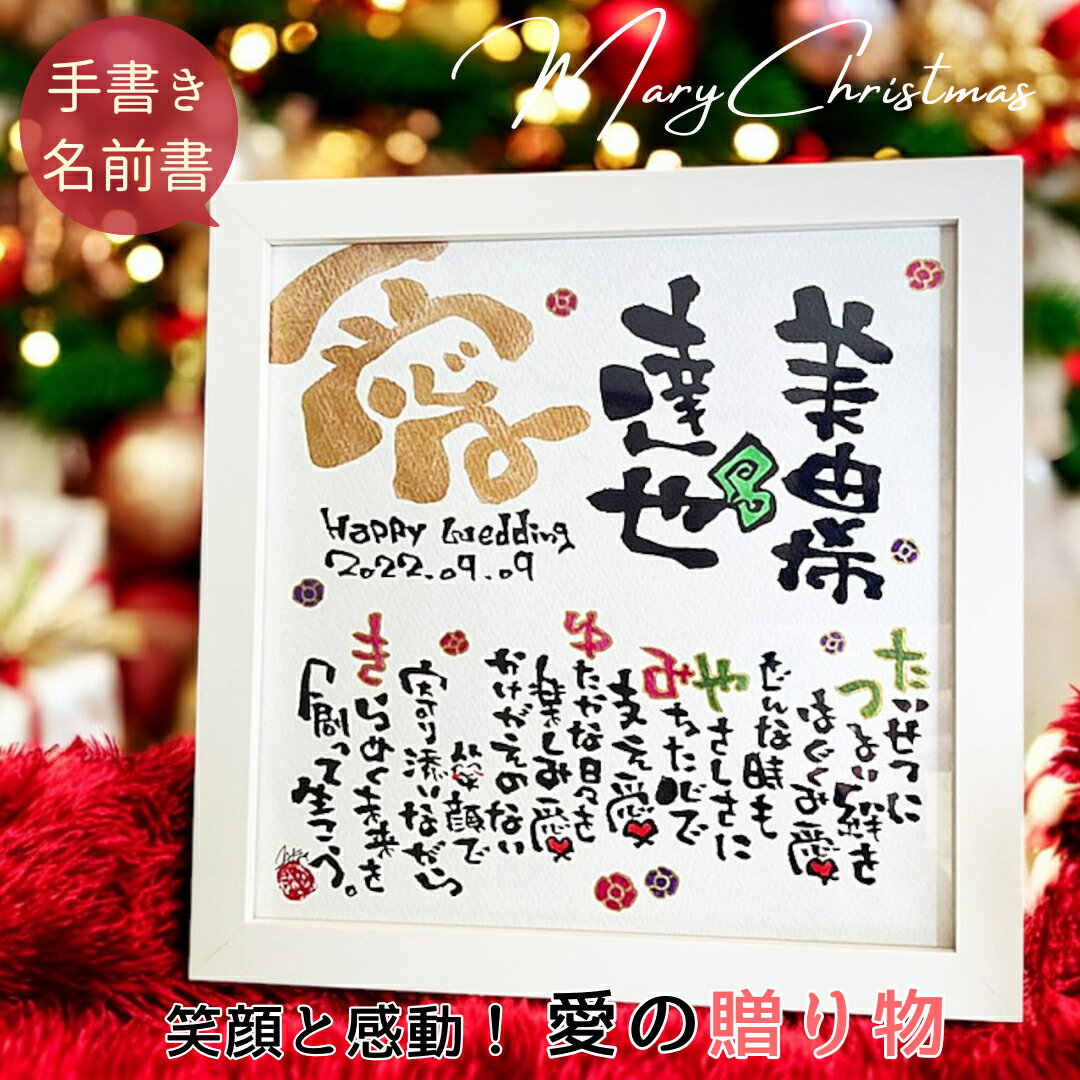 手書き
名前書
Mary Christmas
美由希
達也
愛
Happy Wedding
2022.09.09
たいせつに
つよい絆を
はぐくみ愛
どんな時も
やさしさに
みちた心で
支え愛
ゆたかな日々を
楽しみ愛
かけがえのない
笑顔で
寄り添いながら
きらめく未来を
創って生こう。
笑顔と感動！愛の贈り物